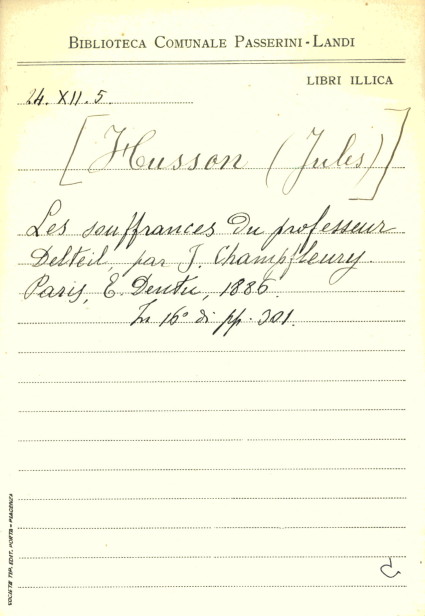 BIBLIOTECA COMUNALE PASSERINI-LANDI
LIBRI ILLICA
24. XII. 5.
[Husson (Jules)]
Les souffrances du professeur
Delteil, par J. Champfleury.
Paris, E. Dentu, 1886.
In 16° di pp. 301.
SOCIETÀ TIP. EDIT. PORTA - PIACENZA